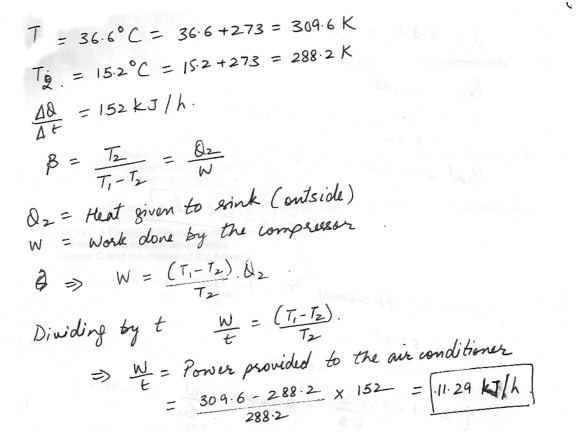 T = 36.6°C = 36.6 + 273 = 309.6 K
T2 = 15.2°C = 15.2 + 273 = 288.2 K
ΔQ/Δt = 152 kJ/h.
β = T2/(T1 - T2) = Q2/W
Q2 = Heat given to sink (outside)
W = Work done by the compressor
⇒ W = (T1 - T2). Q2 / T2
Dividing by t W/t = (T1 - T2)./T2
⇒ W/t = Power provided to the air conditioner
= (309.6 - 288.2)/288.2 × 152 = 11.29 kJ/h